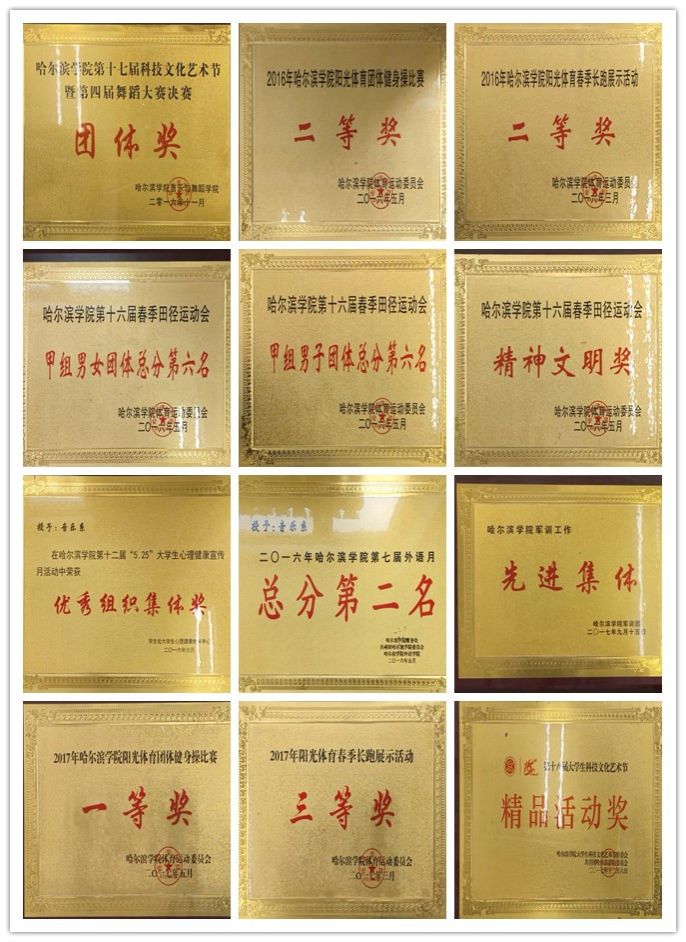 哈尔滨学院第十七届科技文化艺术节
暨第四届舞蹈大赛决赛
团体奖
哈尔滨学院音乐与舞蹈学院
二零一六年十一月
2016年哈尔滨学院阳光体育团体健身操比赛
二等奖
哈尔滨学院体育运动委员会
二〇一六年五月
2016年哈尔滨学院阳光体育春季长跑展示活动
二等奖
哈尔滨学院体育运动委员会
二〇一六年三月
哈尔滨学院第十六届春季田径运动会
甲组男女团体总分第六名
哈尔滨学院体育运动委员会
二〇一六年五月
哈尔滨学院第十六届春季田径运动会
甲组男子团体总分第六名
哈尔滨学院体育运动委员会
二〇一六年五月
哈尔滨学院第十六届春季田径运动会
精神文明奖
哈尔滨学院体育运动委员会
二〇一六年五月
授予:音乐系
在哈尔滨学院第十二届“5.25”大学生心理健康宣传
月活动中荣获
优秀组织集体奖
二〇一六年六月
授予:音乐系
二〇一六年哈尔滨学院第七届外语月
总分第二名
二〇一六年五月
哈尔滨学院军训工作
先进集体
哈尔滨学院军训团
二〇一七年九月十五日
2017年哈尔滨学院阳光体育团体健身操比赛
一等奖
哈尔滨学院体育运动委员会
二〇一七年五月
2017年阳光体育春季长跑展示活动
三等奖
哈尔滨学院体育运动委员会
二〇一七年三月
第十八届大学生科技文化艺术节
精品活动奖